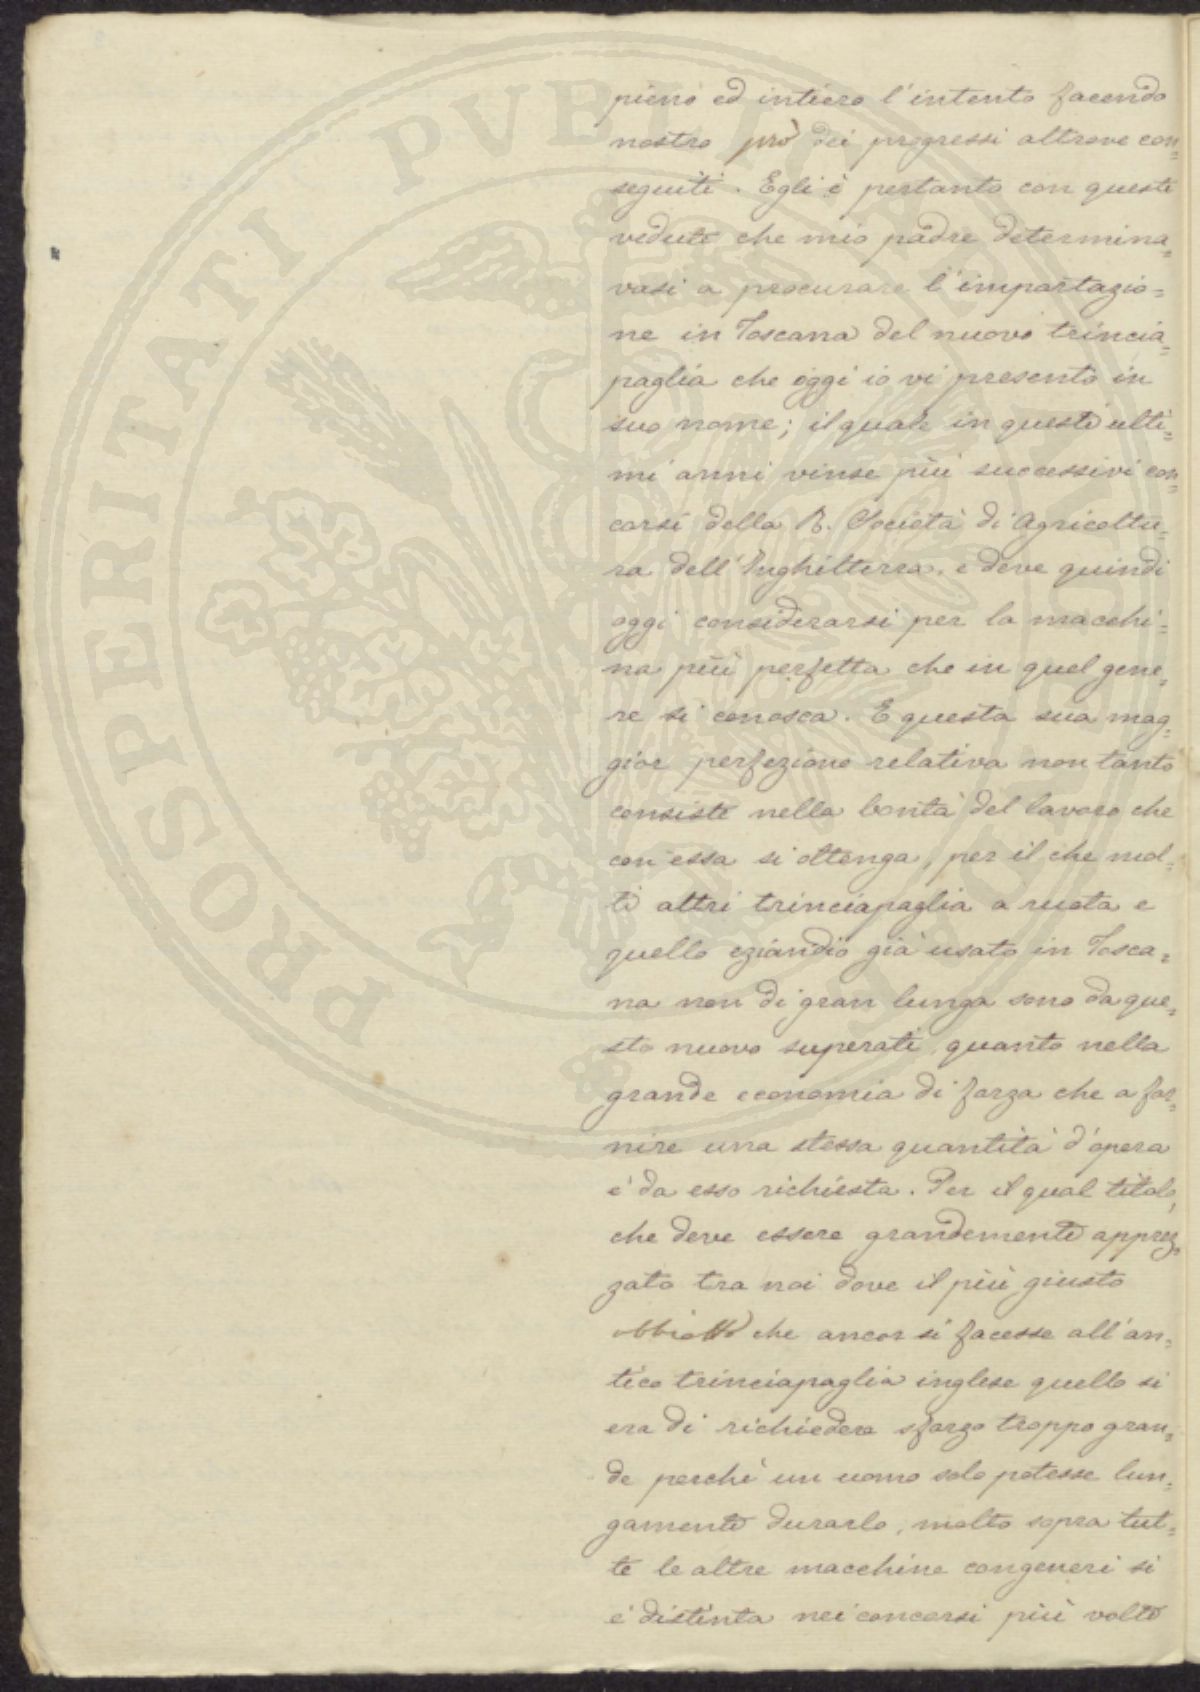 pieno ed intiero l'intento facendo
nostro prò dei progressi altrove con=
seguiti. Egli è pertanto con queste
vedute che mio padre determina=
vasi a procurare l'importazio=
ne in Toscana del nuovo trincia=
paglia che oggi io vi presento in
suo nome; il quale in questi ulti=
mi anni vinse più successivi con=
corsi della R. Società di Agricoltu=
ra dell'Inghilterra, e deve quindi
oggi considerarsi per la macchi=
na più perfetta che in quel gene=
re si conosca. E questa sua mag=
gior perfezione relativa non tanto
consiste nella bontà del lavoro che
con essa si ottenga, per il che mol=
ti altri trinciapaglia a ruota e
quello eziandio già usato in Tosca=
na non di gran lunga sono da que=
sto nuovo superati, quanto nella
grande economia di forza che a for=
nire una stessa quantità d'opera
è da esso richiesta. Per il qual titolo,
che deve essere grandemente apprez=
zato tra noi dove il più giusto
obbietto che ancor si facesse all'an=
tico trinciapaglia inglese quello si
era di richiedere sforzo troppo gran=
de perchè un uomo solo potesse lun=
gamente durarlo, molto sopra tut=
te le altre macchine congeneri si
è distinta nei concorsi più volte
PROSPERITATI PVBLICAE